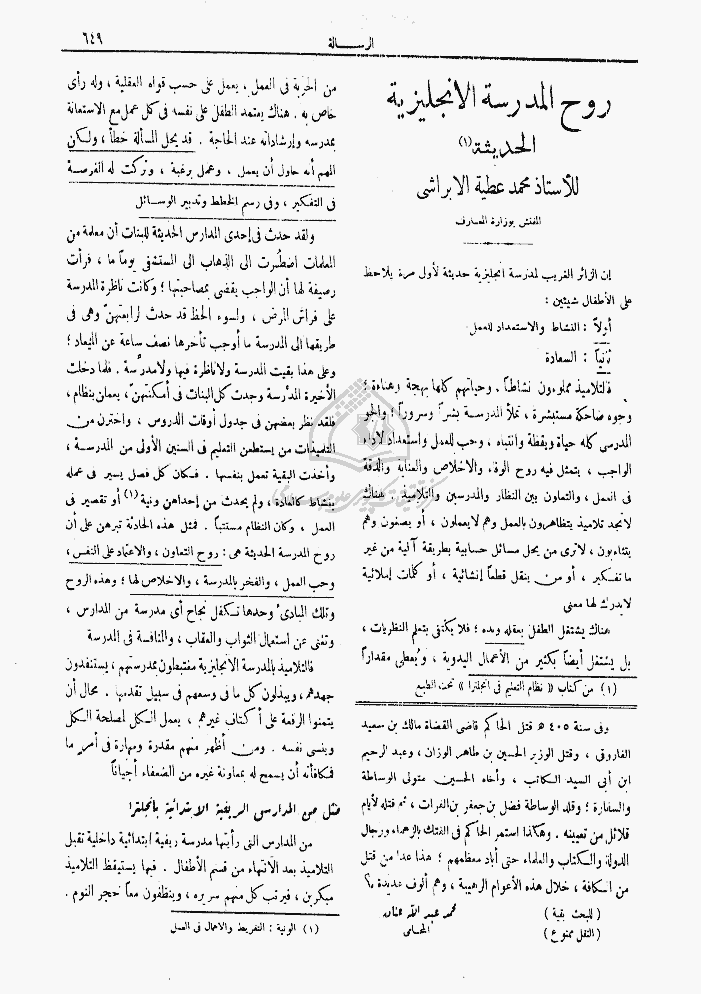 الرسالة
٦٤٩
روح المدرسة الانجليزية
الحديثة (١)
للأستاذ محمد عطية الابراشي
المفتش بوزارة المعارف
إن الزائر الغريب لمدرسة انجليزية حديثة لأول مرة يلاحظ
على الأطفال شيئين :
أولاً : النشاط والاستعداد للعمل
ثانياً : السعادة
فالتلاميذ مملوءون نشاطاً . وحياتهم كلها بهجة وهناءة ؛
وجوه ضاحكة مستبشرة ، تملأ المدرسة بشراً وسروراً ؛ والجو
المدرسي كله حياة ويقظة وانتباه ، وحب للعمل واستعداد لأداء
الواجب ، يتمثل فيه روح الوفاء والاخلاص والعناية والدقة
في العمل ، والتعاون بين النظار والمدرسين والتلاميذ . هناك
لا تجد تلاميذ يتظاهرون بالعمل وهم لا يعملون ، أو يصغون وهم
يتثاءبون ، لا ترى من يحل مسائل حسابية بطريقة آلية من غير
ما تفكير ، أو من ينقل قطعاً إنشائية ، أو كلمات إملائية
لا يدرك لها معنى
هناك يشتغل الطفل بعقله ويده ؛ فلا يكتفي بتعلم النظريات ،
بل يشتغل أيضاً بكثير من الأعمال اليدوية ، ويُعطى مقداراً
(١) من كتاب « نظام التعليم في انجلترا » تحت الطبع
وفي سنة ٤٠٥ هـ قتل الحاكم قاضي القضاة مالك بن سعيد
الفارقي ، وقتل الوزير الحسين بن طاهر الوزان ، وعبد الرحيم
ابن أبي السيد الكاتب ، وأخاه الحسين متولي الوساطة
والسفارة ؛ وقلد الوساطة فضل بن جعفر بن الفرات ، ثم قتله لأيام
قلائل من تعيينه . وهكذا استمر الحاكم في الفتك بالزعماء ورجال
الدولة والكتاب والعلماء حتى أباد معظمهم ؛ هذا عدا من قتل
من الكافة ، خلال هذه الأعوام الرهيبة ، وهم ألوف عديدة ؟
( للبحث بقية )
محمد عبد الله عنان
( النقل ممنوع )
المحامي
من الحرية في العمل ، يعمل على حسب قواه العقلية ، وله رأي
خاص به . هناك يعتمد الطفل على نفسه في كل عمل مع الاستعانة
بمدرسه وإرشاداته عند الحاجة . قد يحل المسألة خطأ ، ولكن
المهم أنه حاول أن يعمل ، وعمل برغبة ، وتركت له الفرصة
في التفكير ، وفي رسم الخطط وتدبير الوسائل
ولقد حدث في إحدى المدارس الحديثة للبنات أن معلمة من
المعلمات اضطُرت الى الذهاب الى المستشفى يوماً ما ، فرأت
زميلة لها أن الواجب يقضي بمصاحبتها ؛ وكانت ناظرة المدرسة
على فراش المرض ، ولسوء الحظ قد حدث لرابعتهن وهي في
طريقها الى المدرسة ما أوجب تأخرها نصف ساعة عن الميعاد ؛
وعلى هذا بقيت المدرسة ولا ناظرة فيها ولا مدرّسة . فلما دخلت
الأخيرة المدرسة وجدت كل البنات في أمكنتهن ، يعملن بنظام ،
فلقد نظر بعضهن في جدول أوقات الدروس ، واخترن من
التلميذات من يستطعن التعليم في السنين الأولى من المدرسة ،
وأخذت البقية تعمل بنفسها . فكان كل فصل يسير في عمله
بنشاط كالعادة ، ولم يحدث من إحداهن ونية (١) أو تقصير في
العمل ، وكان النظام مستتباً . فمثل هذه الحادثة تبرهن على أن
روح المدرسة الحديثة هي : روح التعاون ، والاعتماد على النفس ،
وحب العمل ، والفخر بالمدرسة ، والاخلاص لها ؛ وهذه الروح
وتلك المبادئ وحدها تكفل نجاح أي مدرسة من المدارس ،
وتغني عن استعمال الثواب والعقاب ، والمنافسة في المدرسة
فالتلاميذ بالمدرسة الانجليزية مغتبطون بمدرستهم ، يستنفدون
جهدهم ، ويبذلون كل ما في وسعهم في سبيل تقدمها . محال أن
يتمنوا الرفعة على أكتاف غيرهم ، يعمل الكل لمصلحة الكل
وينسى نفسه . ومن أظهر منهم مقدرة ومهارة في أمر ما
فمكافأته أن يسمح له بمعاونة غيره من الضعفاء أحياناً
مثل من المدارس الريفية الابتدائية بانجلترا
من المدارس التي رأيتها مدرسة ريفية ابتدائية داخلية تقبل
التلاميذ بعد الانتهاء من قسم الأطفال . فيها يستيقظ التلاميذ
مبكرين ، فيرتب كل منهم سريره ، وينظفون معاً حجر النوم .
(١) الونية : التفريط والاهمال في العمل